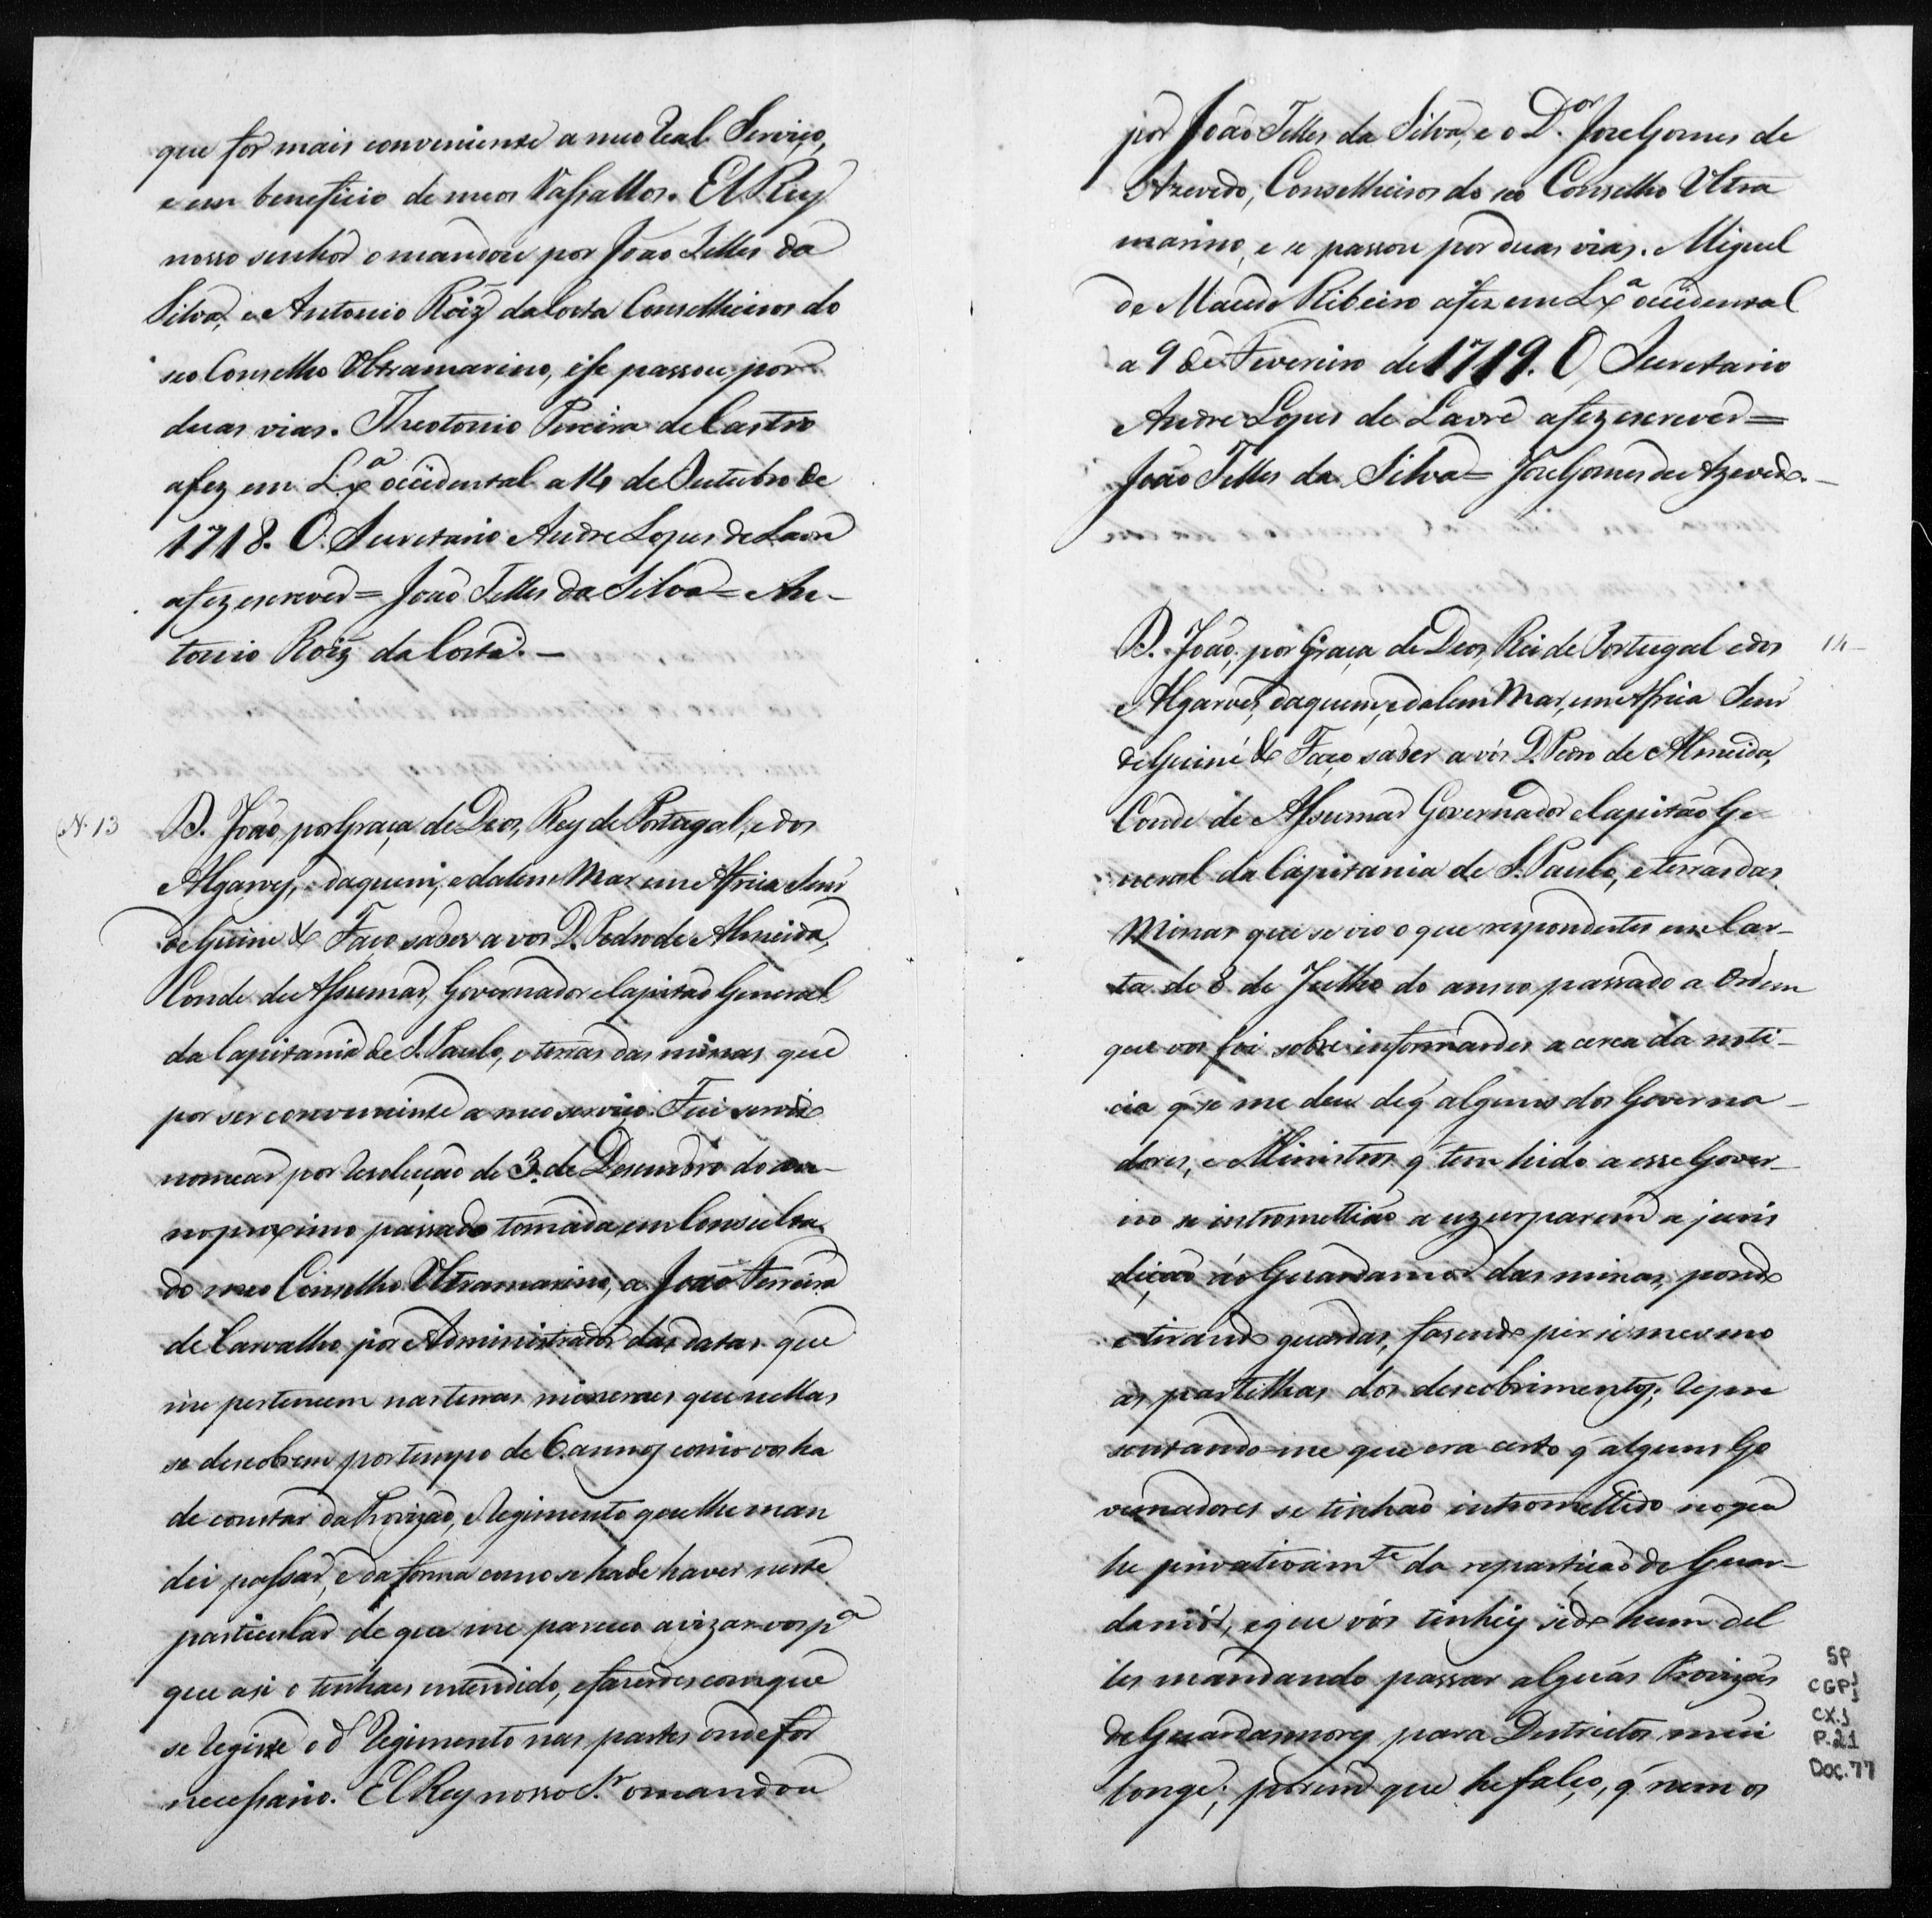 que for mais conveniente a meo Real Serviço,
e em beneficio de meos Vassallos. El Rey
nosso senhor o mandou por João Telles da
Silva, e Antonio Roiz da Costa Conselheiros do
seo Conselho Ultramarino, e se passou por
duas vias. Theotonio Pereira de Castro
a fez em Lxª occidental a 14 de Outubro de
1718. O Secretario Andre Lopes de Lavre
a fez escrever = João Telles da Silva = An-
tonio Roiz da Costa. —
N. 13
D. João por Graça de Deos, Rey de Portugal, e dos
Algarves, daquem, e dalem Mar em Africa Senr
de Guine &c Faço saber a vos D. Pedro de Almeida,
Conde de Assumar, Governador e Capitão General
da Capitania de S. Paulo, e terras das minas, que
por ser conveniente a meo serviço. Fui servido
nomear por Resolução de 3. de Desembro do an-
no proximo passado tomada em Consulta
do meo Conselho Ultramarino, a João Ferreira
de Carvalho por Administrador das datas que
me pertencem nas terras mineraes que nellas
se descobrem por tempo de 6. annos como vos ha
de constar da Provizão, e Regimento que lhe man
dei passar, e da forma como se hade haver neste
particular de que me pareceo avizar-vos pª
que asi o tenhaes entendido, e fazerdes com que
se Registe o dº Regimento nas partes onde for
necessario. El Rey nosso Sr. o mandou
por João Telles da Silva, e o Dor. Joze Gomes de
Azevedo, Conselheiros do seo Conselho Ultra
marino, e se passou por duas vias. Miguel
de Macedo Ribeiro a fez em Lxª occidental
a 9 de Fevereiro de 1719. O Secretario
Andre Lopes de Lavrê a fez escrever =
João Telles da Silva = Joze Gomes de Azevedo. —
14 —
D. João, por Graça de Deos, Rei de Portugal e dos
Algarves, daquem, e dalem Mar, em Africa Senr
de Guiné &c Faço saber a vós D. Pedro de Almeida,
Conde de Assumar Governador e Capitão Ge
neral da Capitania de S. Paulo, e terras das
Minas que se vio o que respondestes em Car-
ta de 8 de Julho do anno passado a Ordem
que vos foi sobre informardes a cerca da noti-
cia q se me deu de q alguns dos Governa-
dores, e Ministros q tem hido a esse Gover-
no se intromettião a uzurparem a juris
dição ao Guardamor das minas, pondo
e tirando guardas, fasendo per si mesmo
as partilhas dos descobrimentos; Repre
sentando-me que era certo q alguns Go
vernadores se tinhão intromettido no que
he privativamte. da repartição do Guar-
damór, e que vós tinheis sido hum del
les mandando passar alguãs Provizões
de Guardasmores para Destrictos mui
longe; porem que he falço, q nem os
SP
CGP1
CX.1
P.21
Doc.77